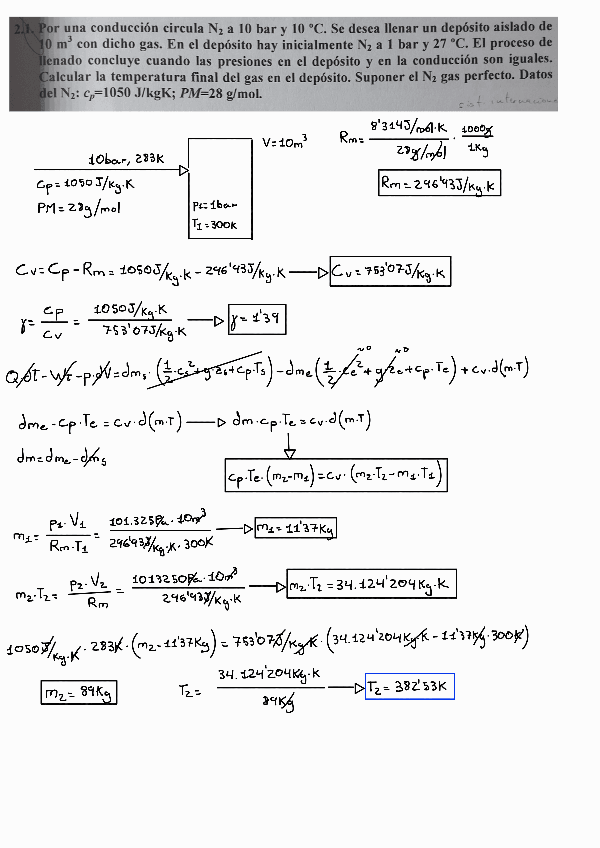 2.1. Por una conducción circula N₂ a 10 bar y 10 ºC. Se desea llenar un depósito aislado de
10 m³ con dicho gas. En el depósito hay inicialmente N₂ a 1 bar y 27 ºC. El proceso de
llenado concluye cuando las presiones en el depósito y en la conducción son iguales.
Calcular la temperatura final del gas en el depósito. Suponer el N₂ gas perfecto. Datos
del N₂: cₚ=1050 J/kgK; PM=28 g/mol.
10bar, 283K
Cp=1050J/Kg·K
PM=28g/mol
V=10m³
P1=1bar
T1=300K
Rm= 8'314J/mol·K / 28g/mol · 1000g / 1Kg
Rm=296'93J/Kg·K
Cv=Cp-Rm=1050J/Kg·K-296'93J/Kg·K → Cv=753'07J/Kg·K
γ= Cp / Cv = 1050J/Kg·K / 753'07J/Kg·K → γ=1'39
Q·dT-Wt-p·dV=dms·(1/2·Cs²+g·zs+Cp·Ts)-dme(1/2·Ce²+g·ze+Cp·Te)+Cv·d(m·T)
≈0 ≈0
dme-Cp·Te=Cv·d(m·T) → dm·Cp·Te=Cv·d(m·T)
dm=dme-dms
Cp·Te·(m2-m1)=Cv·(m2·T2-m1·T1)
m1= P1·V1 / Rm·T1 = 101.325Pa·10m³ / 296'93J/Kg·K·300K → m1=11'37Kg
m2·T2= P2·V2 / Rm = 1013250Pa·10m³ / 296'93J/Kg·K → m2·T2=34.124'204Kg·K
1050J/Kg·K·283K·(m2-11'37Kg)=753'07J/Kg·K·(34.124'204Kg·K-11'37Kg·300K)
m2=89Kg
T2= 34.124'204Kg·K / 89Kg → T2=382'53K